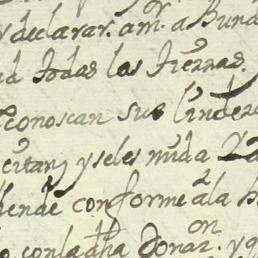 declarar. a mor. a
todas las tierras
conoscan sus linder
citan, y se les mida
conforme a la
con la dha Donaon. y q